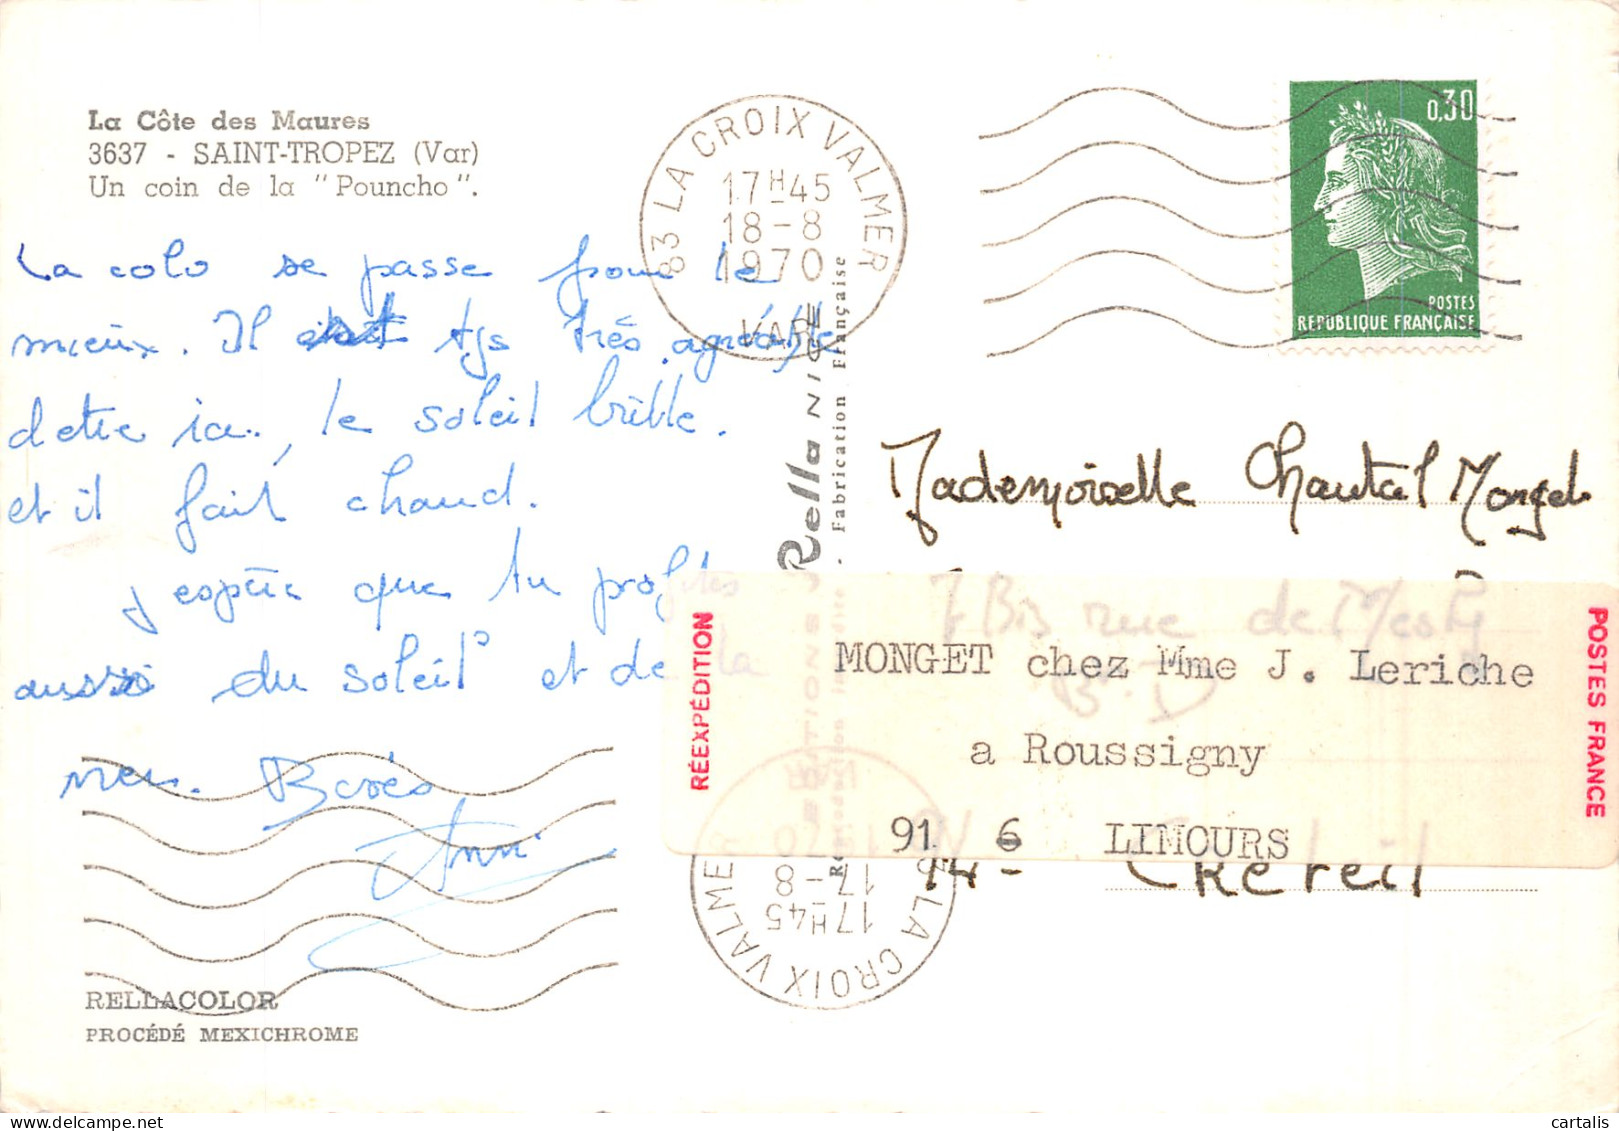 La Côte des Maures
3637 - SAINT-TROPEZ (Var)
Un coin de la "Pouncho".
La colo se passe pour le
mieux. Il est tjs très agréable
detre ici, le soleil brille.
et il fait chaud.
j espère que tu profites
aussi du soleil et de la
mer. Bises
RELLACOLOR
PROCÉDÉ MEXICHROME
83 LA CROIX VALMER
17H45
18-8
1970
VAR
Rella NICE
- Fabrication Française
EDITIONS
Reproduction interdite
0,30
POSTES
REPUBLIQUE FRANÇAISE
Mademoiselle Chantal Monget
7 Bis rue de Mesly
RÉEXPÉDITION
MONGET chez Mme J. Leriche
a Roussigny
91 6 LIMOURS
POSTES FRANCE
94 - CReteil
LA CROIX VALMER
17H45
17-8
70
cartalis
delcampe.net